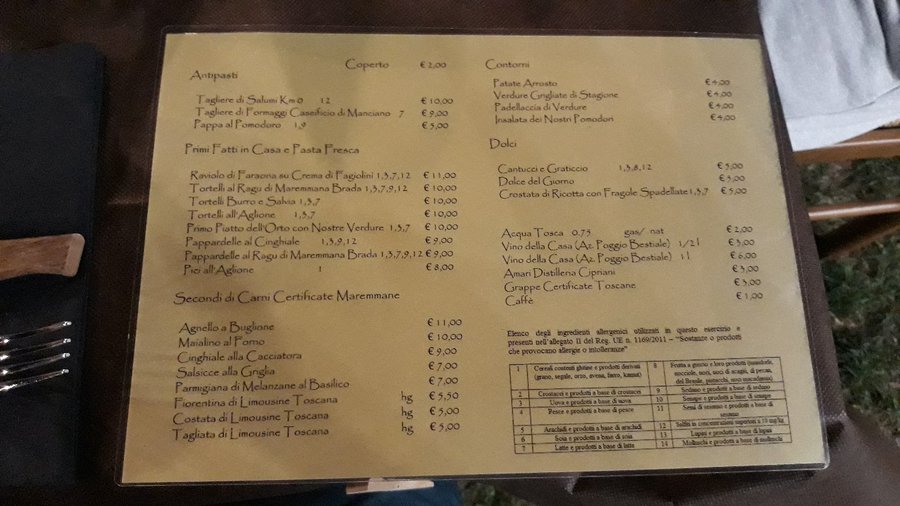 Coperto € 2,00
Antipasti
Tagliere di Salumi Km 0 12 € 10,00
Tagliere di Formaggi Caseificio di Manciano 7 € 9,00
Pappa al Pomodoro 1,9 € 5,00
Primi Fatti in Casa e Pasta Fresca
Raviolo di Faraona su Crema di Fagiolini 1,3,7,12 € 11,00
Tortelli al Ragu di Maremmana Brada 1,3,7,9,12 € 10,00
Tortelli Burro e Salvia 1,3,7 € 10,00
Tortelli all'Aglione 1,3,7 € 10,00
Primo Piatto dell'Orto con Nostre Verdure 1,3,7 € 10,00
Pappardelle al Cinghiale 1,3,9,12 € 9,00
Pappardelle al Ragu di Maremmana Brada 1,3,7,9,12 € 9,00
Pici all'Aglione 1 € 8,00
Secondi di Carni Certificate Maremmane
Agnello a Buglione € 11,00
Maialino al Forno € 10,00
Cinghiale alla Cacciatora € 9,00
Salsicce alla Griglia € 7,00
Parmigiana di Melanzane al Basilico € 7,00
Fiorentina di Limousine Toscana hg € 5,50
Costata di Limousine Toscana hg € 5,00
Tagliata di Limousine Toscana hg € 5,00
Contorni
Patate Arrosto € 4,00
Verdure Grigliate di Stagione € 4,00
Padellaccia di Verdure € 4,00
Insalata dei Nostri Pomodori € 4,00
Dolci
Cantucci e Graticcio 1,3,8,12 € 5,00
Dolce del Giorno € 5,00
Crostata di Ricotta con Fragole Spadellate 1,3,7 € 5,00
Acqua Tosca 0,75 gas/ nat € 2,00
Vino della Casa (Az. Poggio Bestiale) 1/2 l € 3,00
Vino della Casa (Az. Poggio Bestiale) 1 l € 6,00
Amari Distilleria Cipriani € 3,00
Grappe Certificate Toscane € 3,00
Caffè € 1,00
Elenco degli ingredienti allergenici utilizzati in questo esercizio e
presenti nell'allegato II del Reg. UE n. 1169/2011 – "Sostanze o prodotti
che provocano allergie o intolleranze"
1 Cereali contenti glutine e prodotti derivati
(grano, segale, orzo, avena, farro, kamut)
2 Crostacei e prodotti a base di crostacei
3 Uova e prodotti a base di uova
4 Pesce e prodotti a base di pesce
5 Arachidi e prodotti a base di arachidi
6 Soia e prodotti a base di soia
7 Latte e prodotti a base di latte
8 Frutta a guscio e loro prodotti (mandorle,
nocciole, noci, noci di acagiù, di pecan,
del Brasile, pistacchi, noce macadamia)
9 Sedano e prodotti a base di sedano
10 Senape e prodotti a base di senape
11 Semi di sesamo e prodotti a base di
sesamo
12 Solfiti in concentrazioni superiori a 10 mg/kg
13 Lupini e prodotti a base di lupini
14 Molluschi e prodotti a base di molluschi